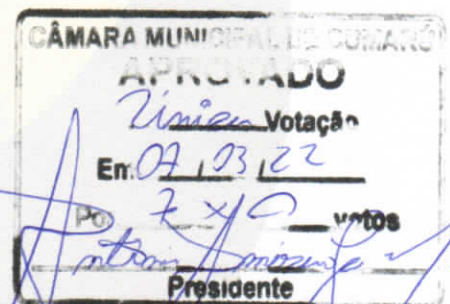 CÂMARA MUNICIPAL DE CUMARÚ
APROVADO
Única Votação
Em 07 / 03 / 22
Por 7 x 0 votos
Presidente